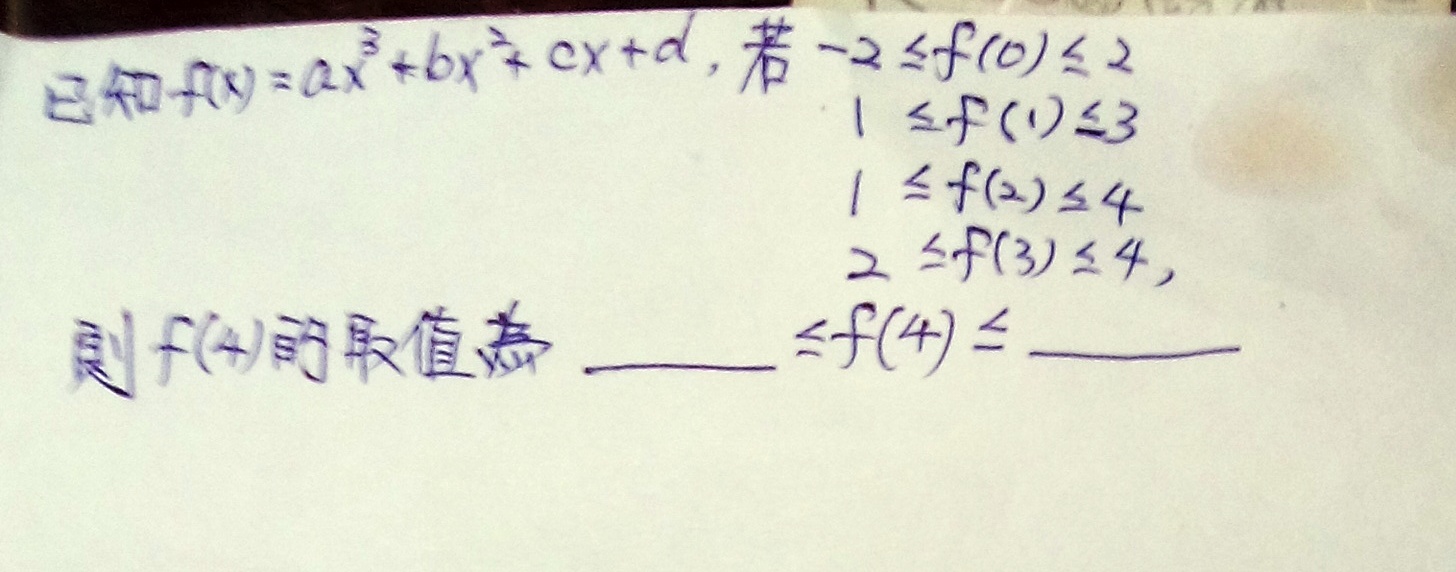 已知 f(x) = ax³ + bx² + cx + d, 若 -2 ≤ f(0) ≤ 2
1 ≤ f(1) ≤ 3
1 ≤ f(2) ≤ 4
2 ≤ f(3) ≤ 4,
則 f(4) 的取值為 ______ ≤ f(4) ≤ ______